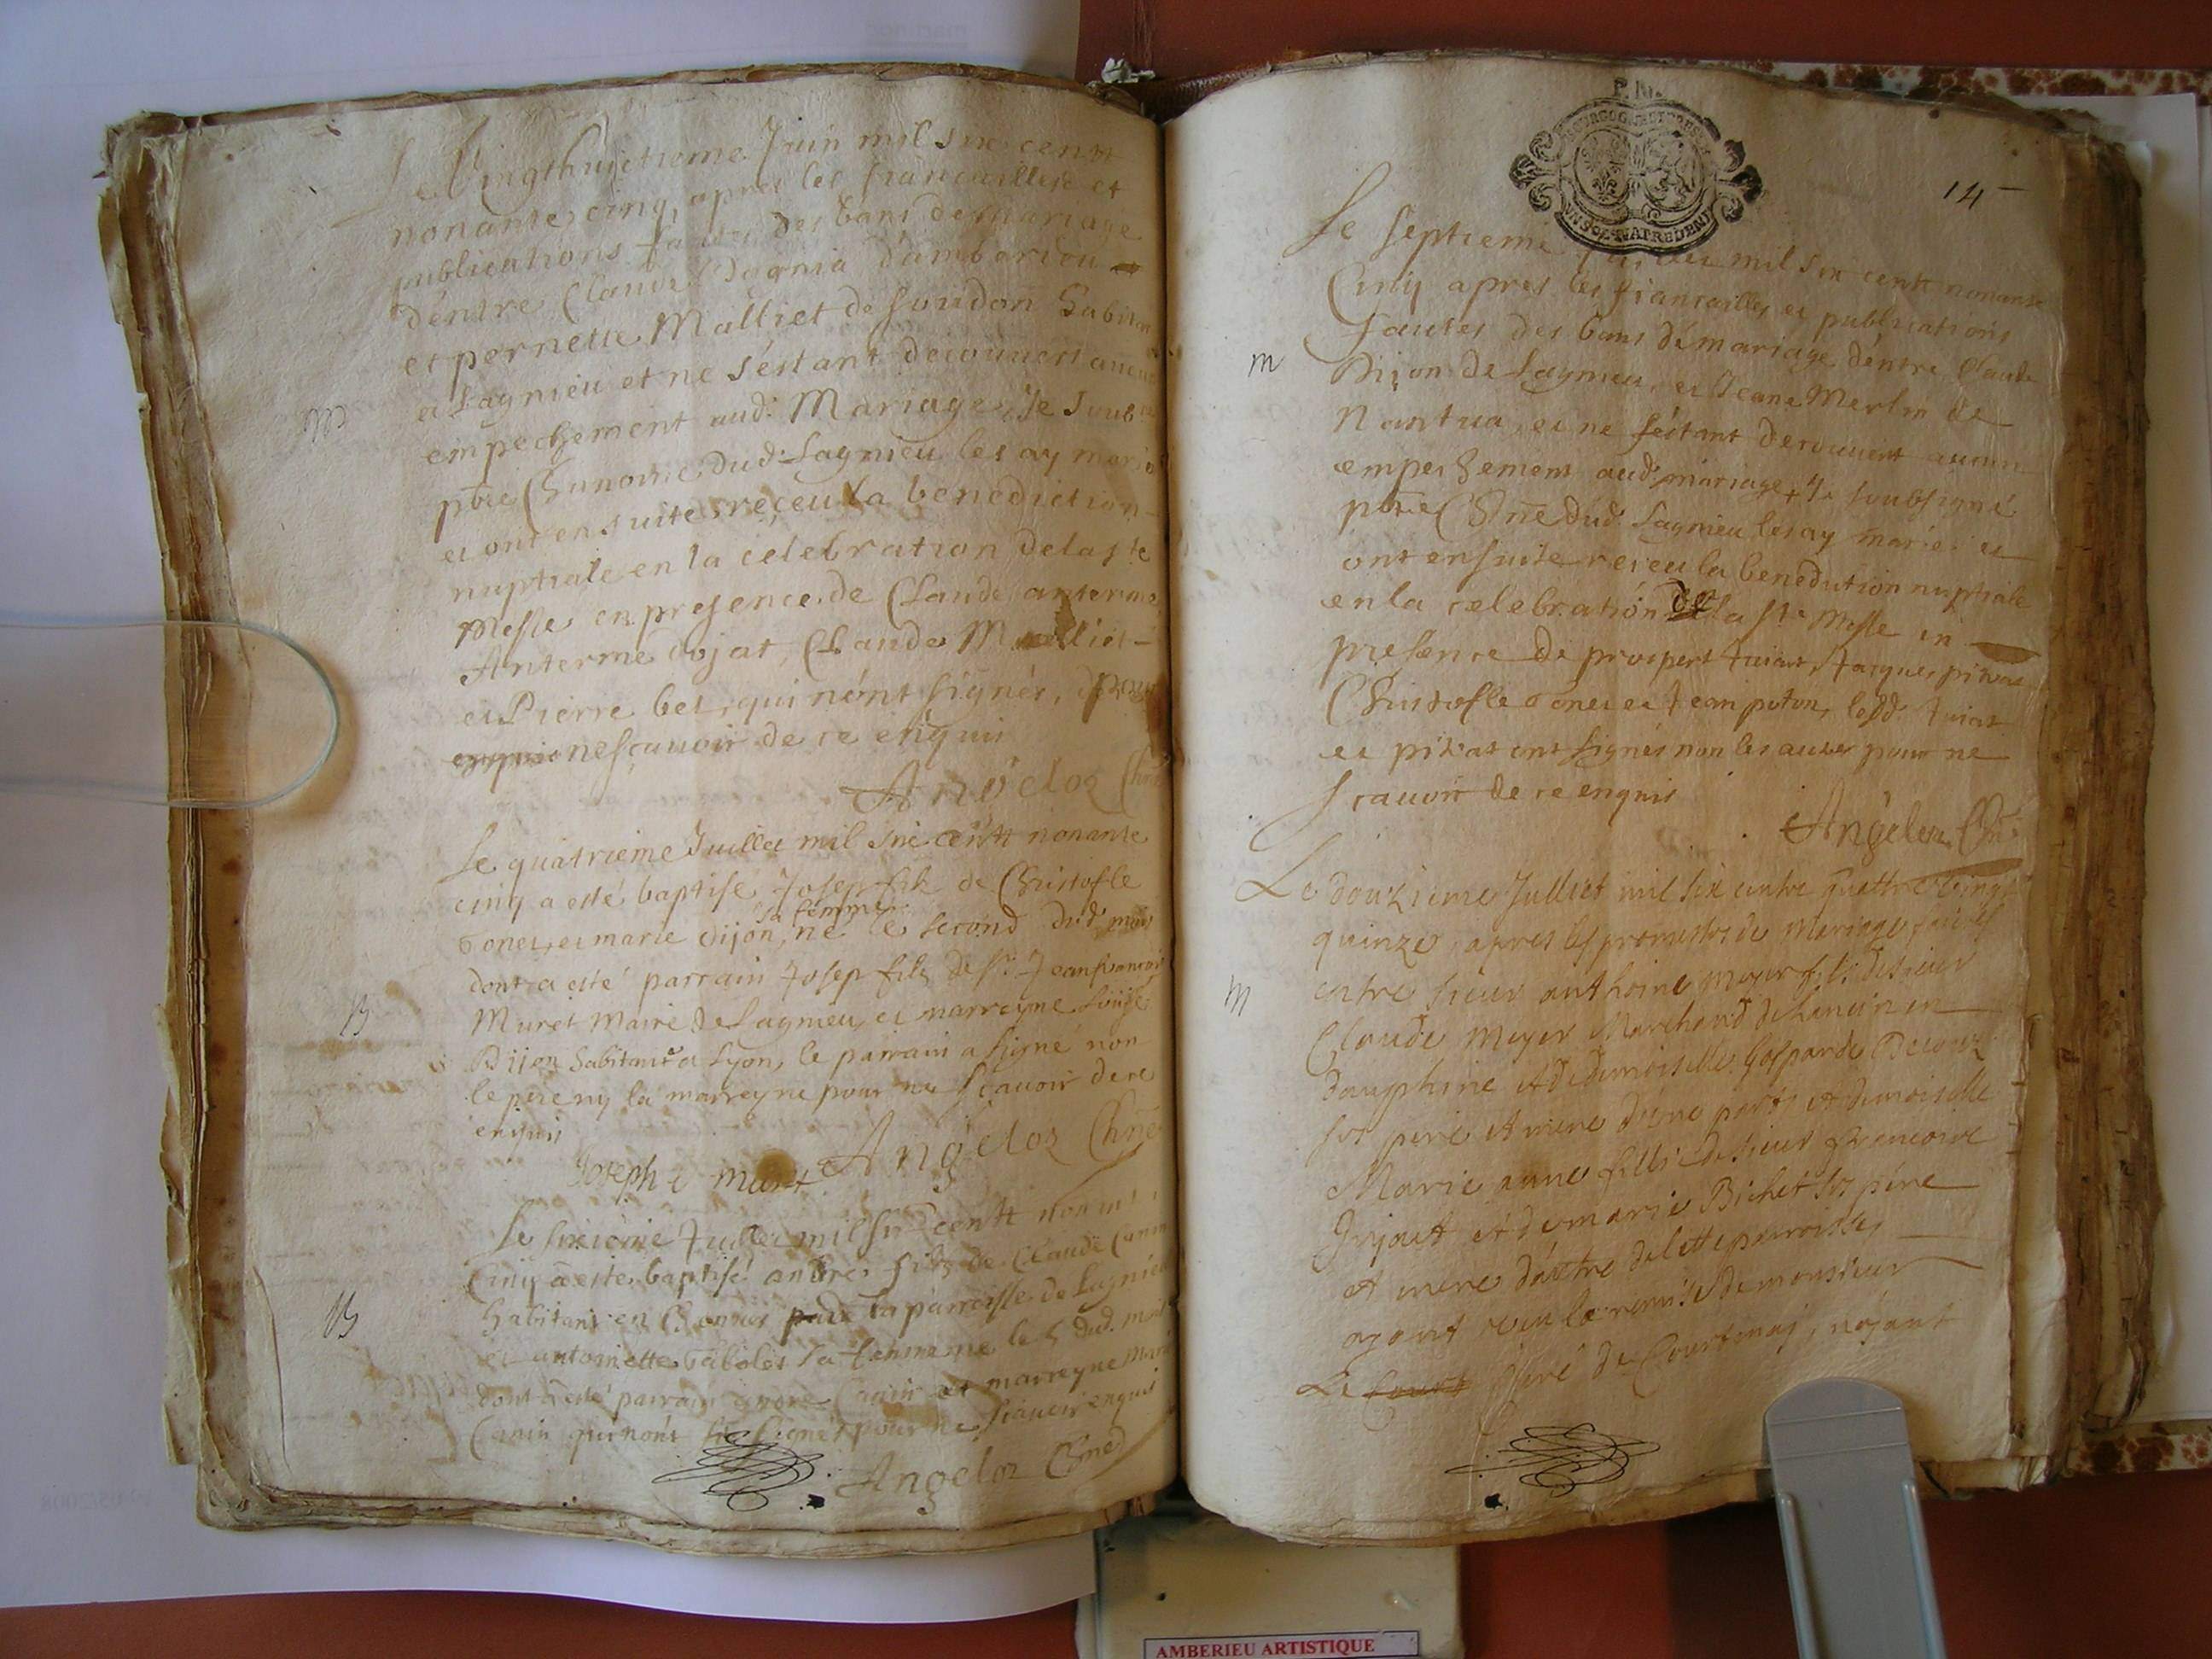 Le Vingthuictieme Juin mil six centt
nonante cinq, apres les fiancailles et
publications faites des bans de mariage
d'entre Claude d'ambarieu
et pernette Malliet de Soudon habitan
a Lagnieu et ne s'estant decouvert aucun
empechement aud. Mariage, Je Soub
pbre Chanoine dud. Lagnieu les ay marie
et ont en suite receu la benediction
nuptiale en la celebration de la ste
Messe en presence de Claude anterme
Anterme Cojat, Claude Malliet
et Pierre bet, qui n'ont signés, pour
ne sçauoir de ce enquis
Angelot Chne
Le quatrieme Juillet mil six centt nonante
cinq a esté baptisé Josep fils de Christofle
bonet, et marie dijon, sa femme ne le second dud. mois
dont a esté parrain Josep fils de Sr. Jeanfrancois
Muret Maire de Lagnieu, et marreyne
Dijon habitante a Lyon, le parrain a signé non
le pere ny la marreyne pour ne sçauoir de ce
enquis
Joseph Muret Angelot Chne
Le sixieme Juillet mil six centt
Cinq a este baptisé andre fils de Claude Canin
habitant en la parroisse de Lagnieu
et antoinette sa femme ne le 5 dud. mois
dont a esté parrain andre Canin et marreyne Marie
Canin qui n'ont signés pour ne sçauoir enquis
Angelot Chne
B
B
P. M.
14
Le Septieme Juillet mil six centt nonante
Cinq apres les fiancailles et publications
faites des bans de mariage d'entre Claude
Dijon de Lagnieu, et Jeane Merlin de
m
Nantua, et ne s'estant decouvert aucun
empechement aud. mariage, Je soubsigné
pbre Chne dud. Lagnieu les ay mariés et
ont ensuite receu la benediction nuptiale
en la celebration de la ste Messe en
presence de prospert Juiat, Jacques pitrat
Christofle bonet et Jean poton, lesd. Juiat
et pitrat ont signés non les autres pour ne
scauoir de ce enquis
Angelot Chne
Le douzieme Julliet mil six centtz quattre vingt
quinze, apres les promesses de Mariage faictes
entre sieur anthoine Moyer fils de sieur
m
Claude Moyer Marchand de en
dauphine et de demoiselle Gasparde
ses pere et mere d'une part, et demoiselle
Marie anne fillie de sieur francoise
et de marie Bichet ses pere
et mere d'autre de cette parroisse,
ayant veu la remise de monsieur
Le Curé de Courtenay, n'ayant
AMBERIEU ARTISTIQUE